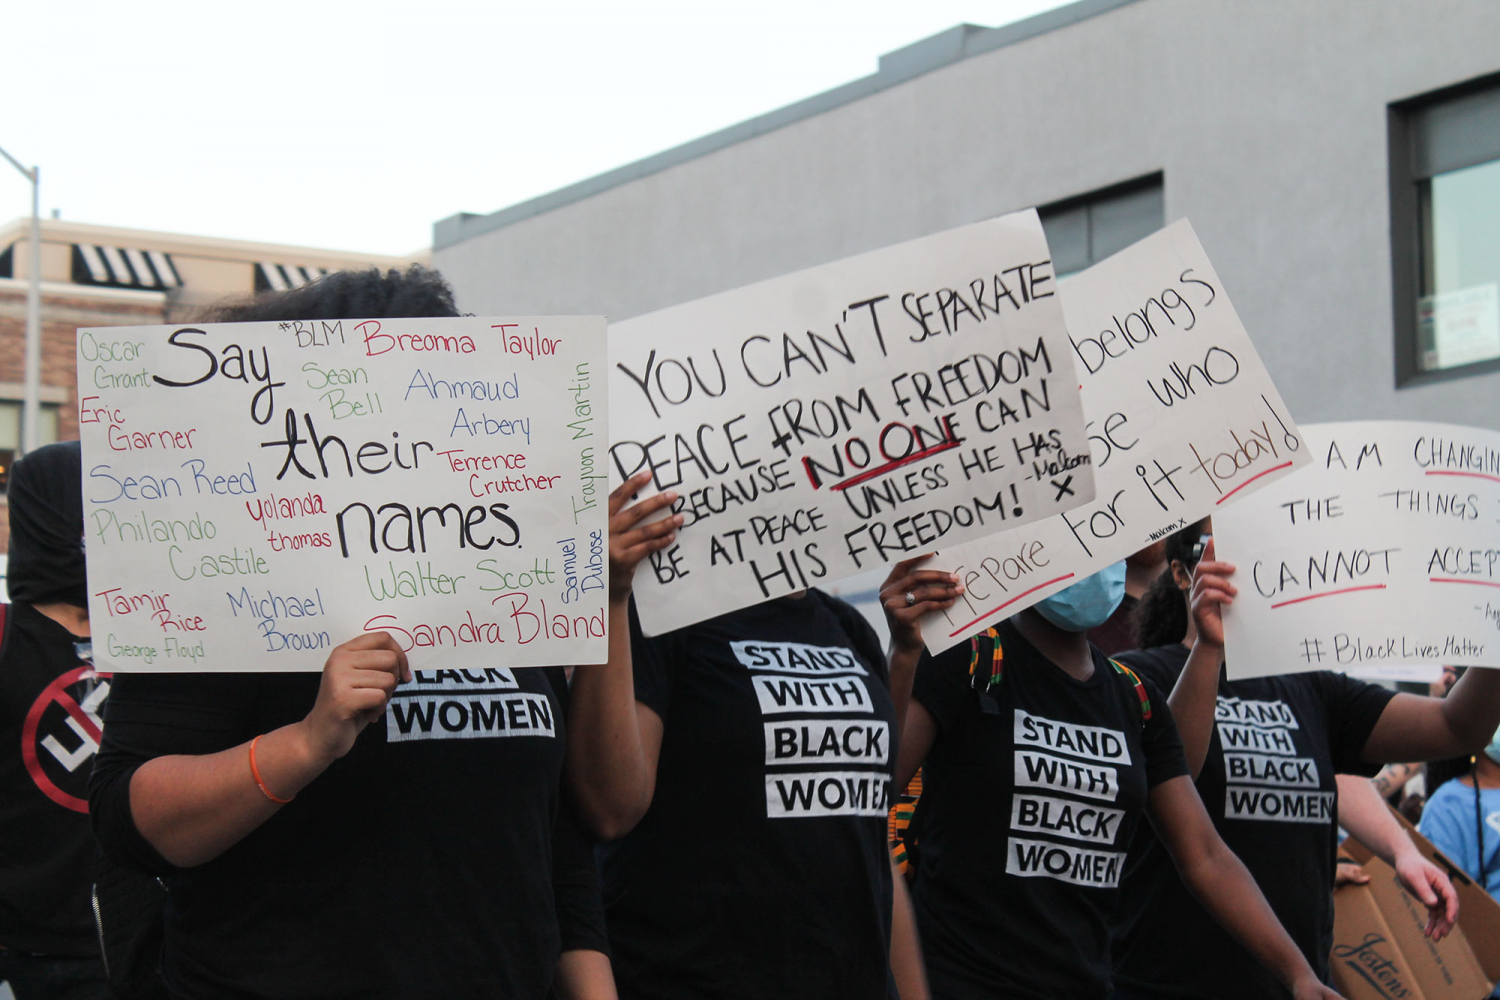 Say
their
names.
#BLM
Oscar
Grant
Breonna Taylor
Sean
Bell
Ahmaud
Arbery
Eric
Garner
Trayvon Martin
Terrence
Crutcher
Sean Reed
Yolanda
thomas
Philando
Castile
Walter Scott
Samuel
Dubose
Tamir
Rice
Michael
Brown
Sandra Bland
George Floyd
YOU CAN'T SEPARATE
PEACE FROM FREEDOM
BECAUSE NO ONE CAN
BE AT PEACE UNLESS HE HAS
HIS FREEDOM!
-Malcom
X
belongs
se who
prepare for it today!
-Malcom X
AM CHANGIN
THE THINGS
CANNOT ACCEPT
#BlackLivesMatter
BLACK
WOMEN
STAND
WITH
BLACK
WOMEN
STAND
WITH
BLACK
WOMEN
STAND
WITH
BLACK
WOMEN
Jostens